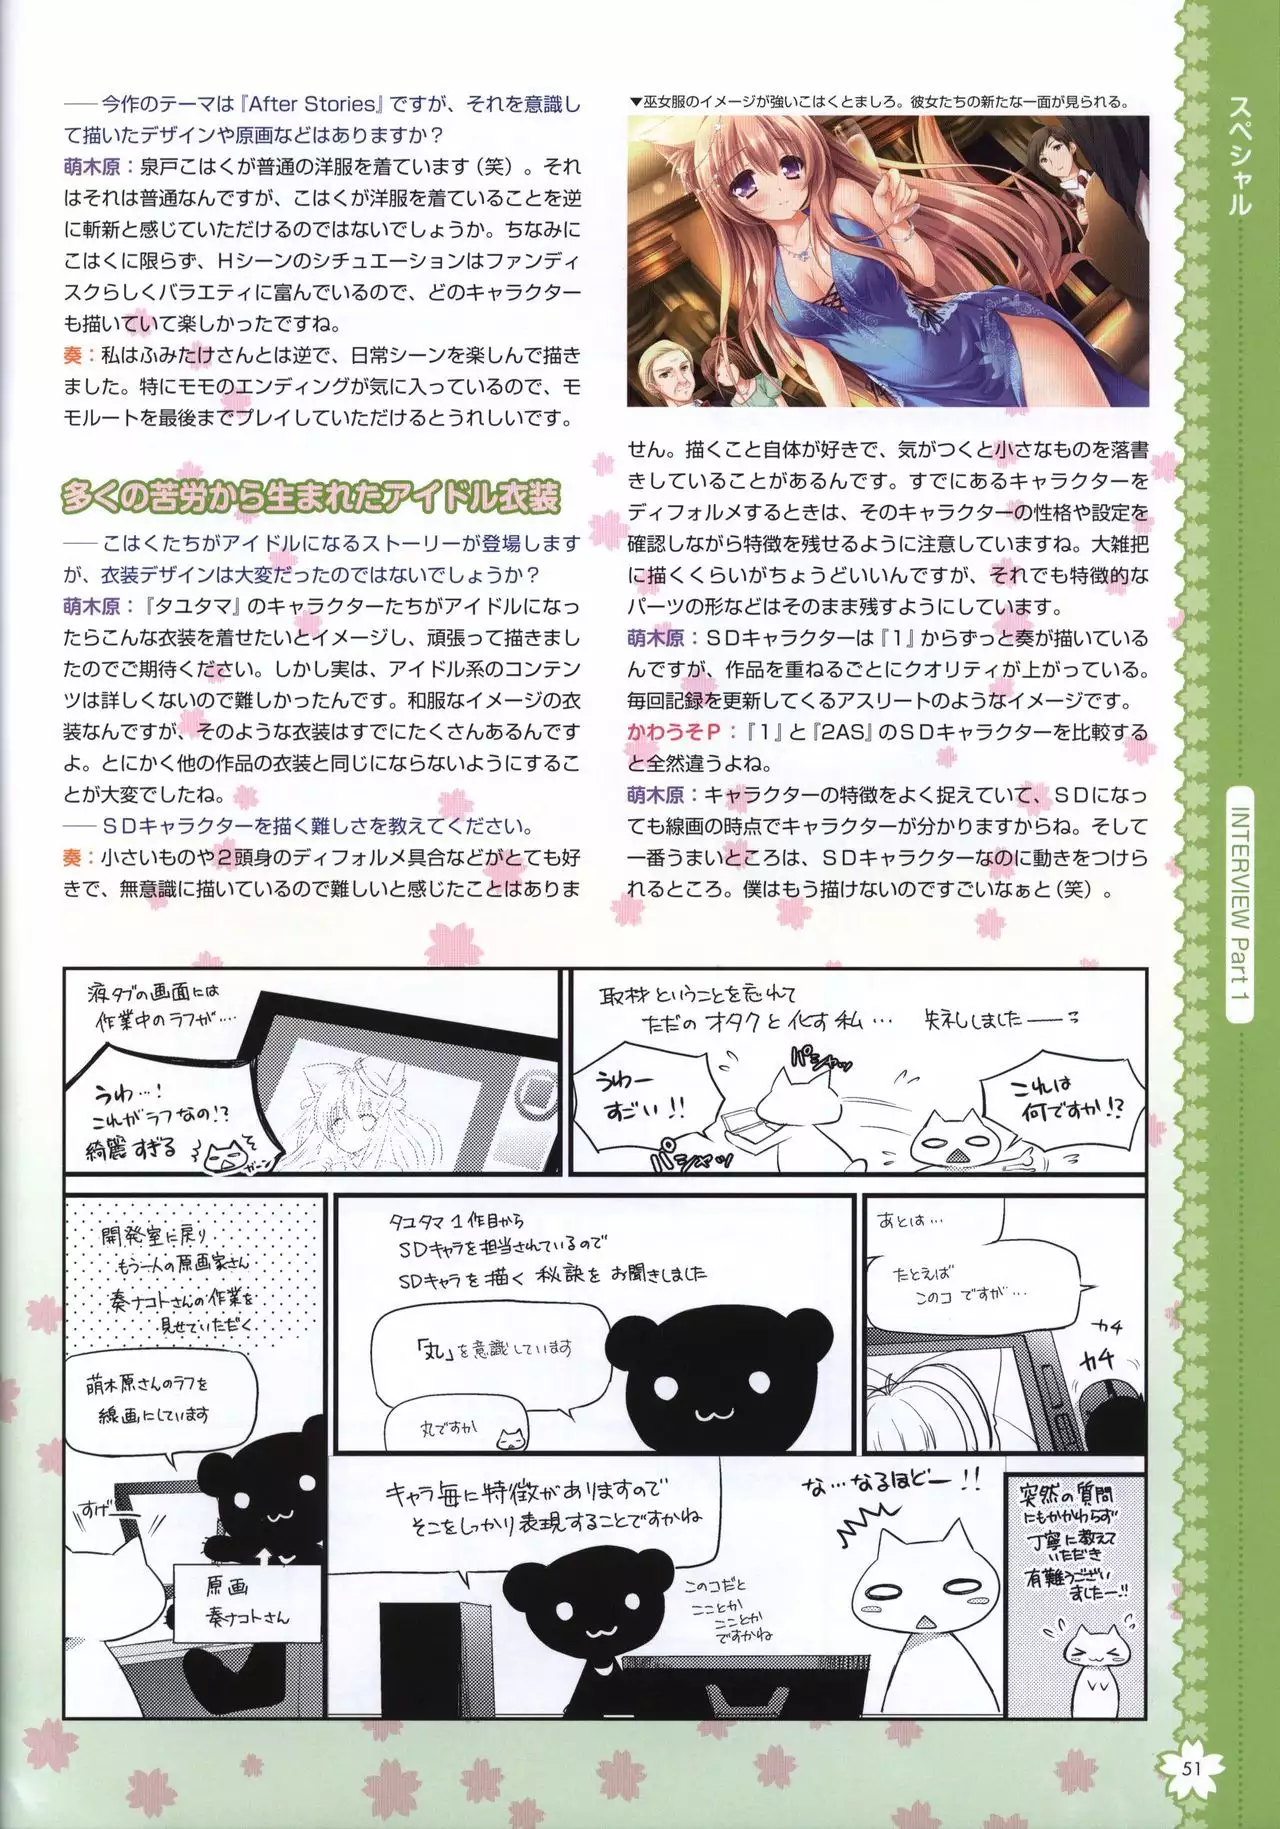 ── 今作のテーマは『After Stories』ですが、それを意識し
て描いたデザインや原画などはありますか？
萌木原：泉戸こはくが普通の洋服を着ています（笑）。それ
はそれは普通なんですが、こはくが洋服を着ていることを逆
に斬新と感じていただけるのではないでしょうか。ちなみに
こはくに限らず、Ｈシーンのシチュエーションはファンディ
スクらしくバラエティに富んでいるので、どのキャラクター
も描いていて楽しかったですね。
奏：私はふみたけさんとは逆で、日常シーンを楽しんで描き
ました。特にモモのエンディングが気に入っているので、モ
モルートを最後までプレイしていただけるとうれしいです。
多くの苦労から生まれたアイドル衣装
── こはくたちがアイドルになるストーリーが登場します
が、衣装デザインは大変だったのではないでしょうか？
萌木原：『タユタマ』のキャラクターたちがアイドルになっ
たらこんな衣装を着せたいとイメージし、頑張って描きまし
たのでご期待ください。しかし実は、アイドル系のコンテン
ツは詳しくないので難しかったんです。和服なイメージの衣
装なんですが、そのような衣装はすでにたくさんあるんです
よ。とにかく他の作品の衣装と同じにならないようにするこ
とが大変でしたね。
── ＳＤキャラクターを描く難しさを教えてください。
奏：小さいものや２頭身のディフォルメ具合などがとても好
きで、無意識に描いているので難しいと感じたことはありま
▼巫女服のイメージが強いこはくとましろ。彼女たちの新たな一面が見られる。
せん。描くこと自体が好きで、気がつくと小さなものを落書
きしていることがあるんです。すでにあるキャラクターを
ディフォルメするときは、そのキャラクターの性格や設定を
確認しながら特徴を残せるように注意していますね。大雑把
に描くくらいがちょうどいいんですが、それでも特徴的な
パーツの形などはそのまま残すようにしています。
萌木原：ＳＤキャラクターは『１』からずっと奏が描いている
んですが、作品を重ねるごとにクオリティが上がっている。
毎回記録を更新してくるアスリートのようなイメージです。
かわうそＰ：『１』と『2AS』のＳＤキャラクターを比較する
と全然違うよね。
萌木原：キャラクターの特徴をよく捉えていて、ＳＤになっ
ても線画の時点でキャラクターが分かりますからね。そして
一番うまいところは、ＳＤキャラクターなのに動きをつけら
れるところ。僕はもう描けないのですごいなぁと（笑）。
スペシャル
INTERVIEW Part 1
液タブの画面には
作業中のラフが‥‥
うわ…！
これがラフなの!?
綺麗すぎる
ガーン
取材ということを忘れて
ただのオタクと化す私… 失礼しましたーーっ
うわー
すごい!!
パシャッ
パシャッ
これは
何ですか!?
開発室に戻り
もう一人の原画家さん
奏ナコトさんの作業を
見せていただく
萌木原さんのラフを
線画にしています
すげーー
原画
奏ナコトさん
タユタマ1作目から
SDキャラを担当されているので
SDキャラを描く秘訣をお聞きしました
「丸」を意識しています
丸ですか
あとは…
たとえば
このコですが…
カチ
カチ
キャラ毎に特徴がありますので
そこをしっかり表現することですかね
このコだと
こことか
こことか
ですかね
な…なるほどー!!
突然の質問
にもかかわらず
丁寧に教えて
いただき
有難うござい
ましたー!!
51